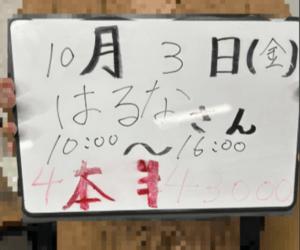 10月 3 日(金)
はるなさん
10:00〜16:00
4本 43000